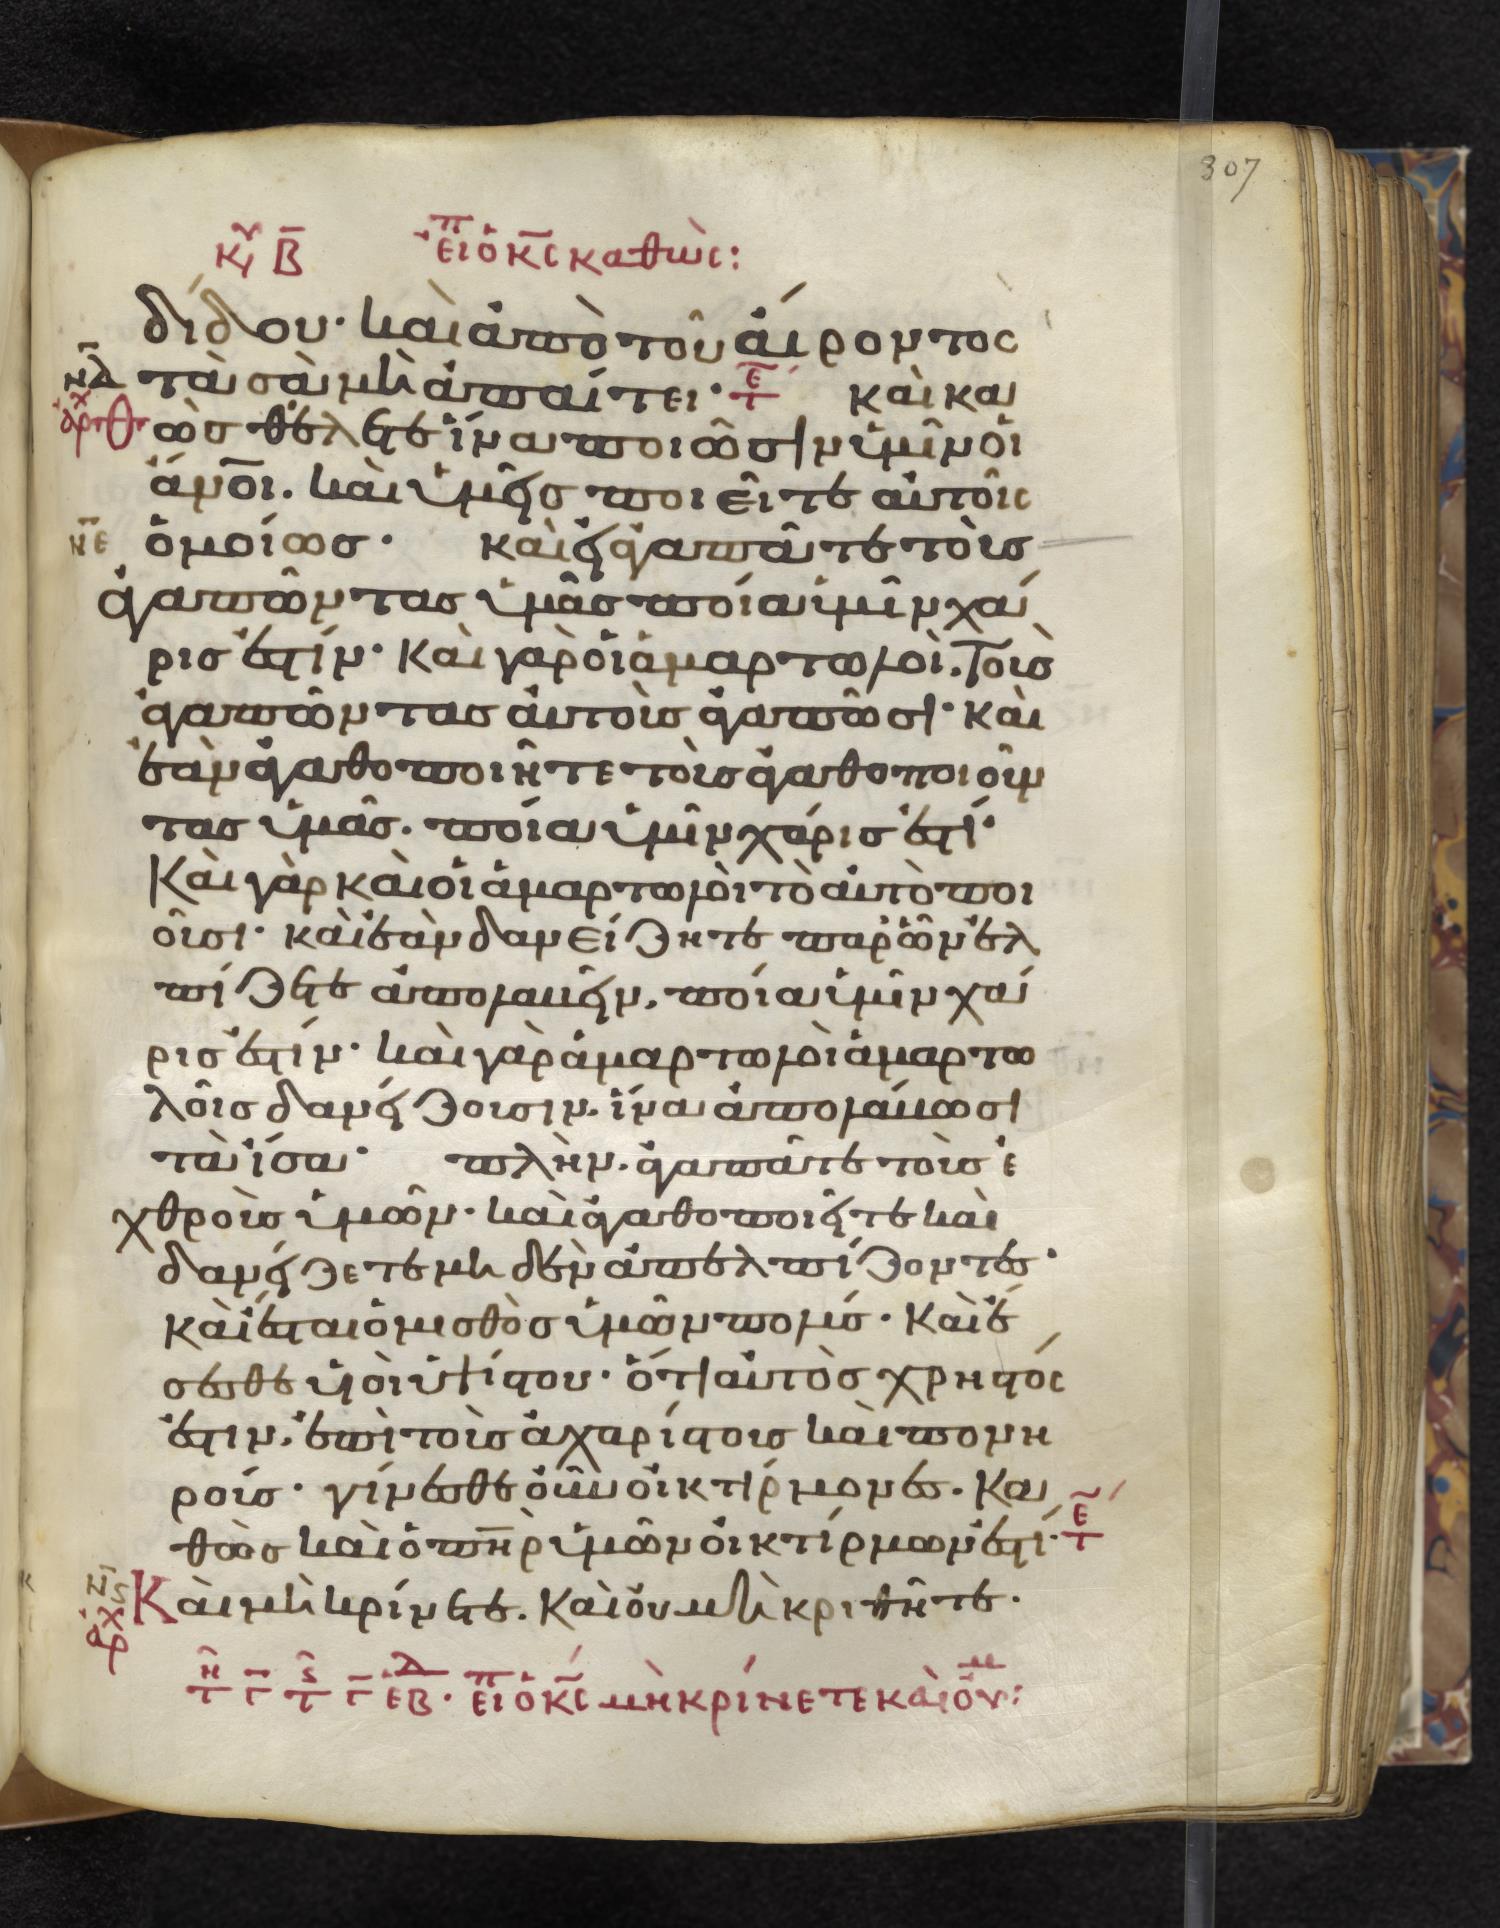 307
κυ Β εἶπ ὁ κς καθὼς:
δίδου· καὶ ἀπὸ τοῦ αἴροντος
νδ τὰ σὰ μὴ ἀπαίτει· τε καὶ κα
ἀρχ θὼς θέλετε ἵνα ποιῶσιν ὑμῖν οἱ
ἄνοι. καὶ ὑμεῖς ποιεῖτε αὐτοῖς
νε ὁμοίως· καὶ εἰ ἀγαπᾶτε τοὺς
ἀγαπῶντας ὑμᾶς ποία ὑμῖν χά
ρις ἐστίν· καὶ γὰρ οἱ ἁμαρτωλοὶ. τοὺς
ἀγαπῶντας αὐτοὺς ἀγαπῶσι· καὶ
ἐὰν ἀγαθοποιῆτε τοὺς ἀγαθοποιοῦν
τας ὑμᾶς. ποία ὑμῖν χάρις ἐστί·
Καὶ γὰρ καὶ οἱ ἁμαρτωλοὶ τὸ αὐτὸ ποι
οῦσι· καὶ ἐὰν δανείζητε παρ' ὧν ἐλ
πίζετε ἀπολαβεῖν, ποία ὑμῖν χά
ρις ἐστίν· καὶ γὰρ ἁμαρτωλοὶ ἁμαρτω
λοῖς δανείζουσιν. ἵνα ἀπολάβωσι
τὰ ἴσα· πλὴν. ἀγαπᾶτε τοὺς ἐ
χθροὺς ὑμῶν· καὶ ἀγαθοποιεῖτε καὶ
δανείζετε μηδὲν ἀπελπίζοντες·
καὶ ἔσται ὁ μισθὸς ὑμῶν πολύς· Καὶ ἔ
σεσθε υἱοὶ ὑψίστου· ὅτι αὐτὸς χρηστός
ἐστιν. ἐπὶ τοὺς ἀχαρίστους καὶ πονη
ρούς· γίνεσθε οὖν οἰκτίρμονες. Κα
θὼς καὶ ὁ πηρ ὑμῶν οἰκτίρμων ἐστί· τε
νς ἀρχ Καὶ μὴ κρίνετε. Καὶ οὐ μὴ κριθῆτε·
τη γ τς γ ἑβδ· εἶπ ὁ κς μὴ κρίνετε καὶ οὐ μ: